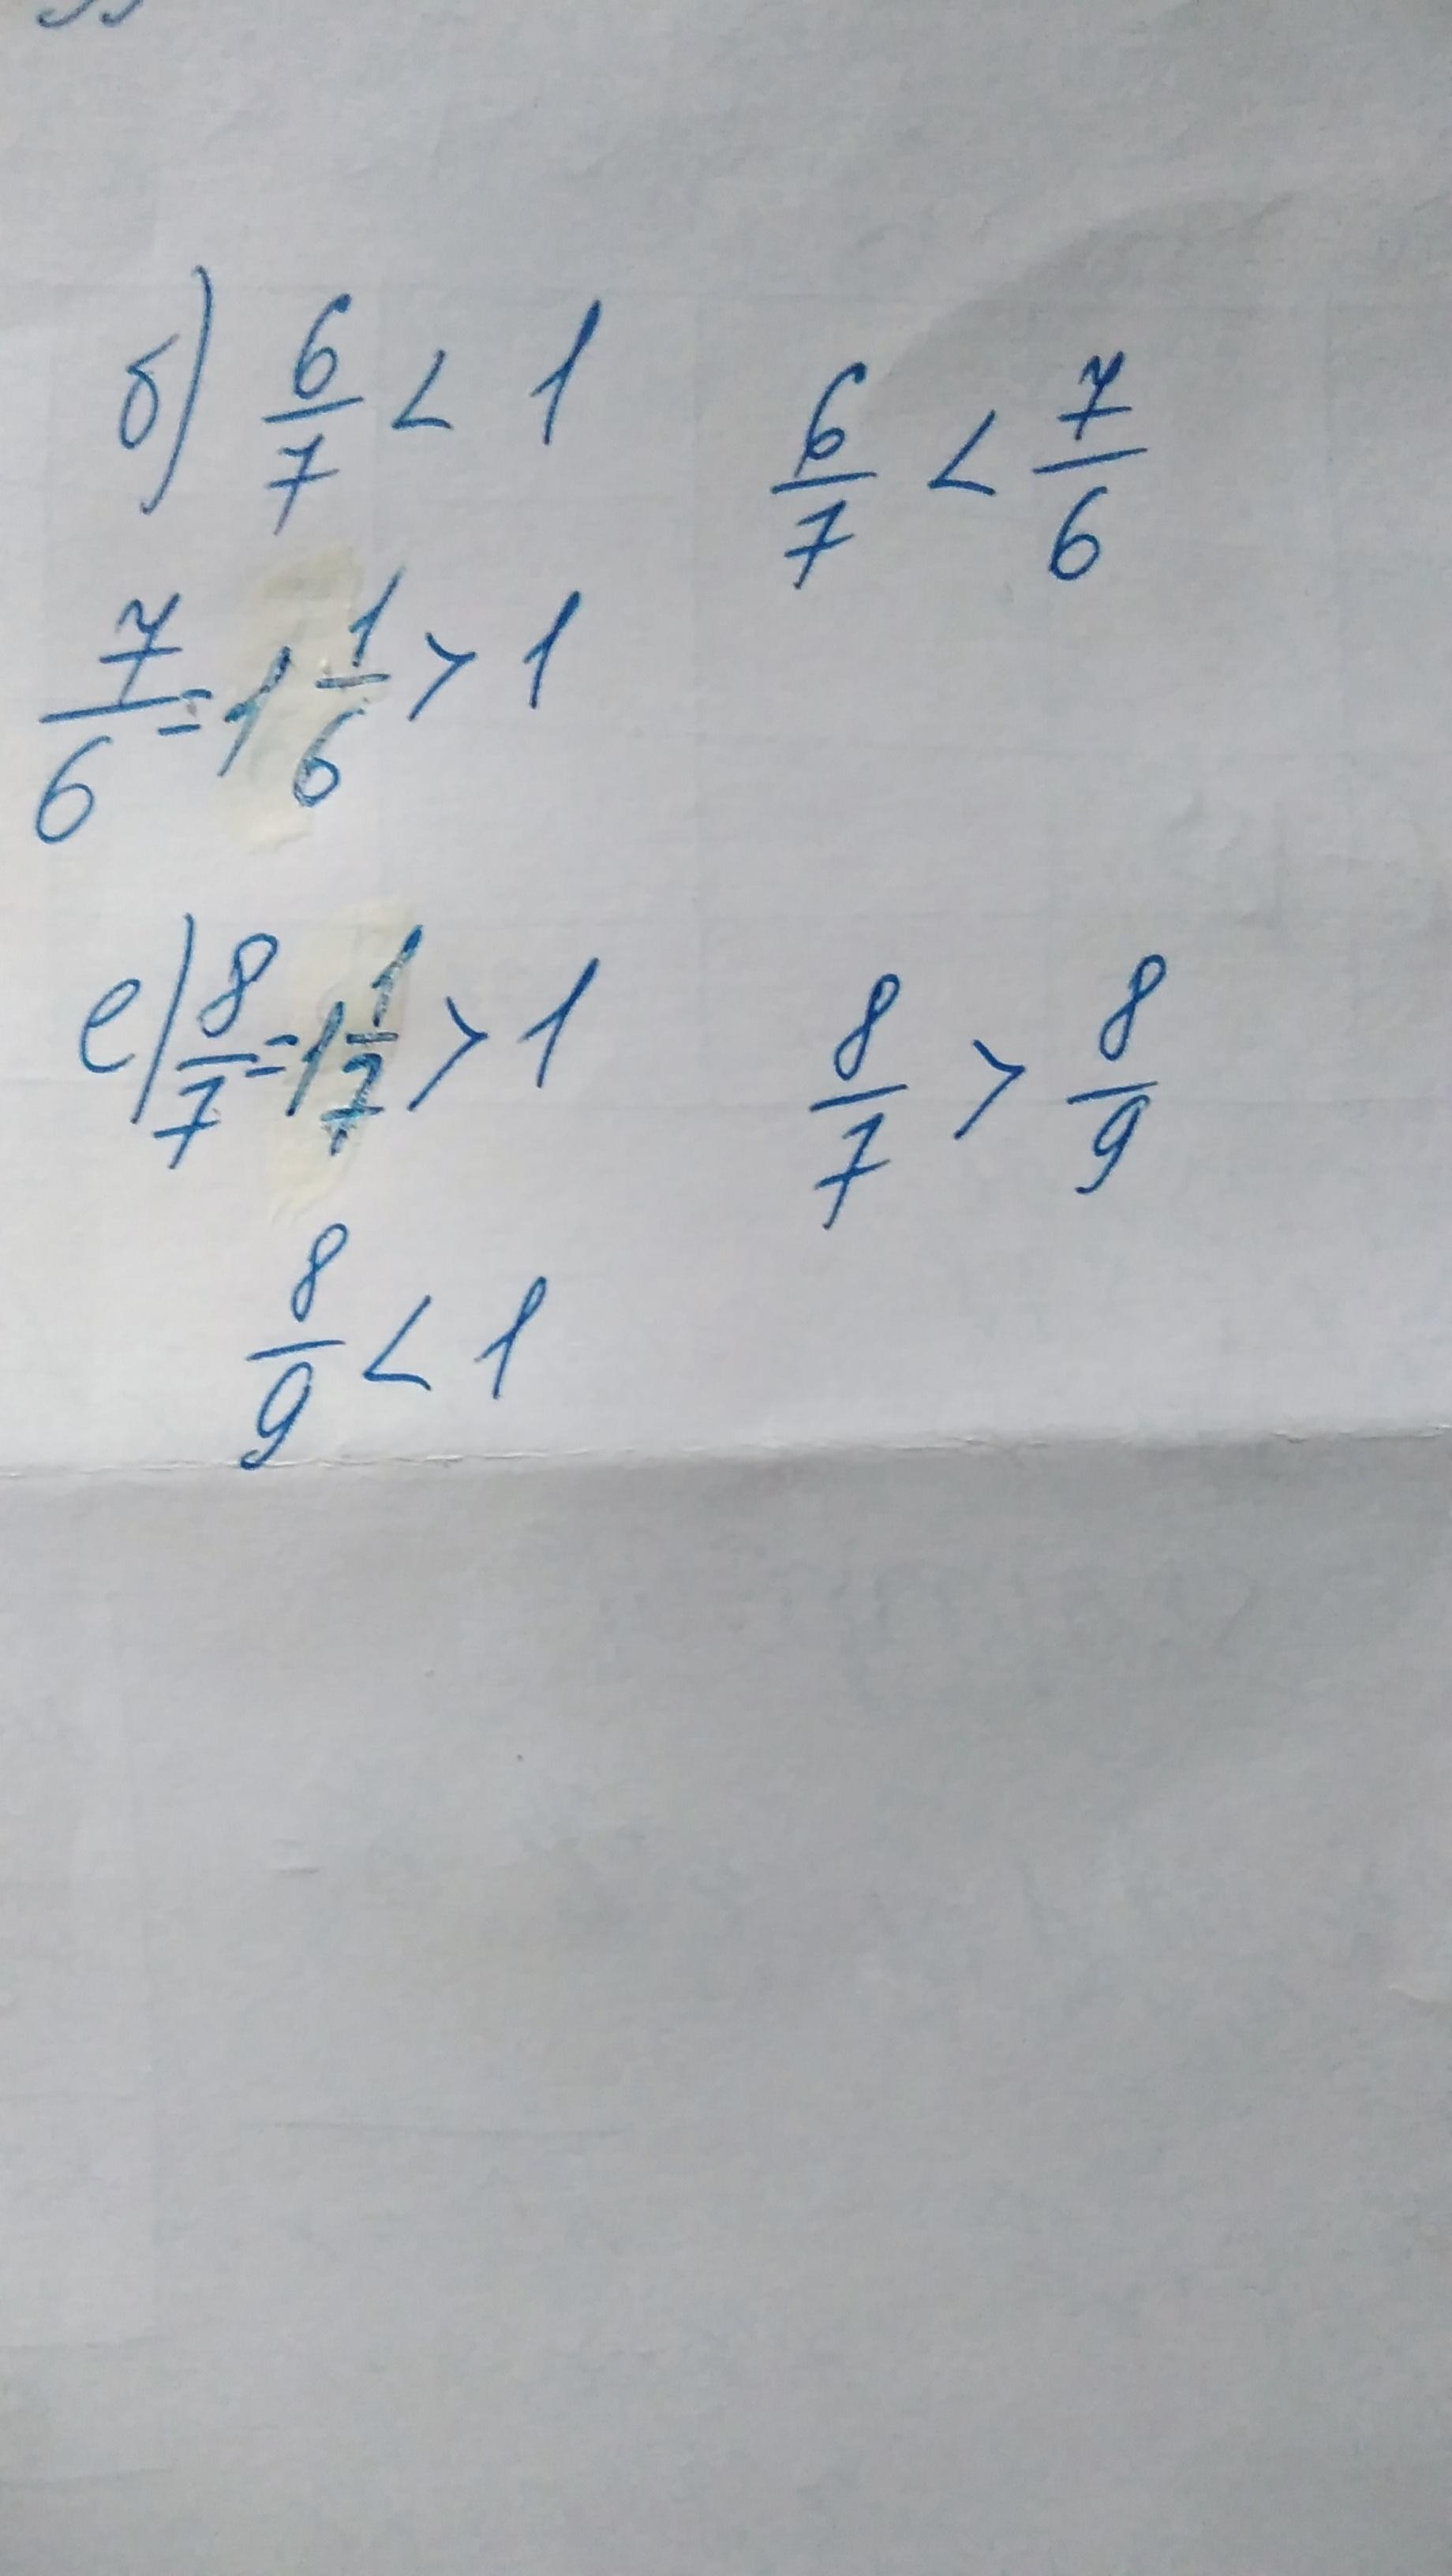 б) 6/7 < 1    6/7 < 7/6
7/6 = 1 1/6 > 1
е) 8/7 = 1 1/7 > 1    8/7 > 8/9
8/9 < 1